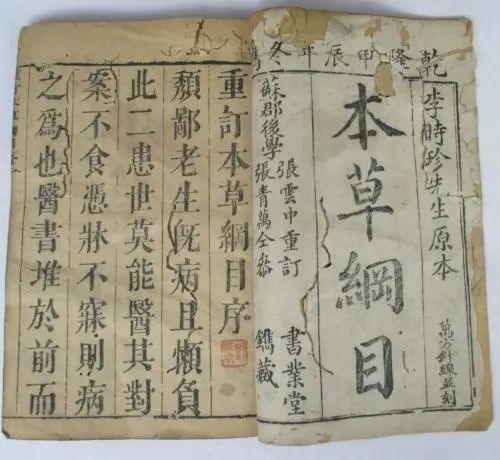 乾隆甲辰年冬
李時珍先生原本
萬方針線並刻
本草綱目
張雲中重訂
蘇郡後學
張青萬仝參
書業堂
鐫藏
重訂本草綱目序
頹鄙老生既病且懶負
此二患世莫能醫其對
案不食憑牀不寐則病
之爲也醫書堆於前而